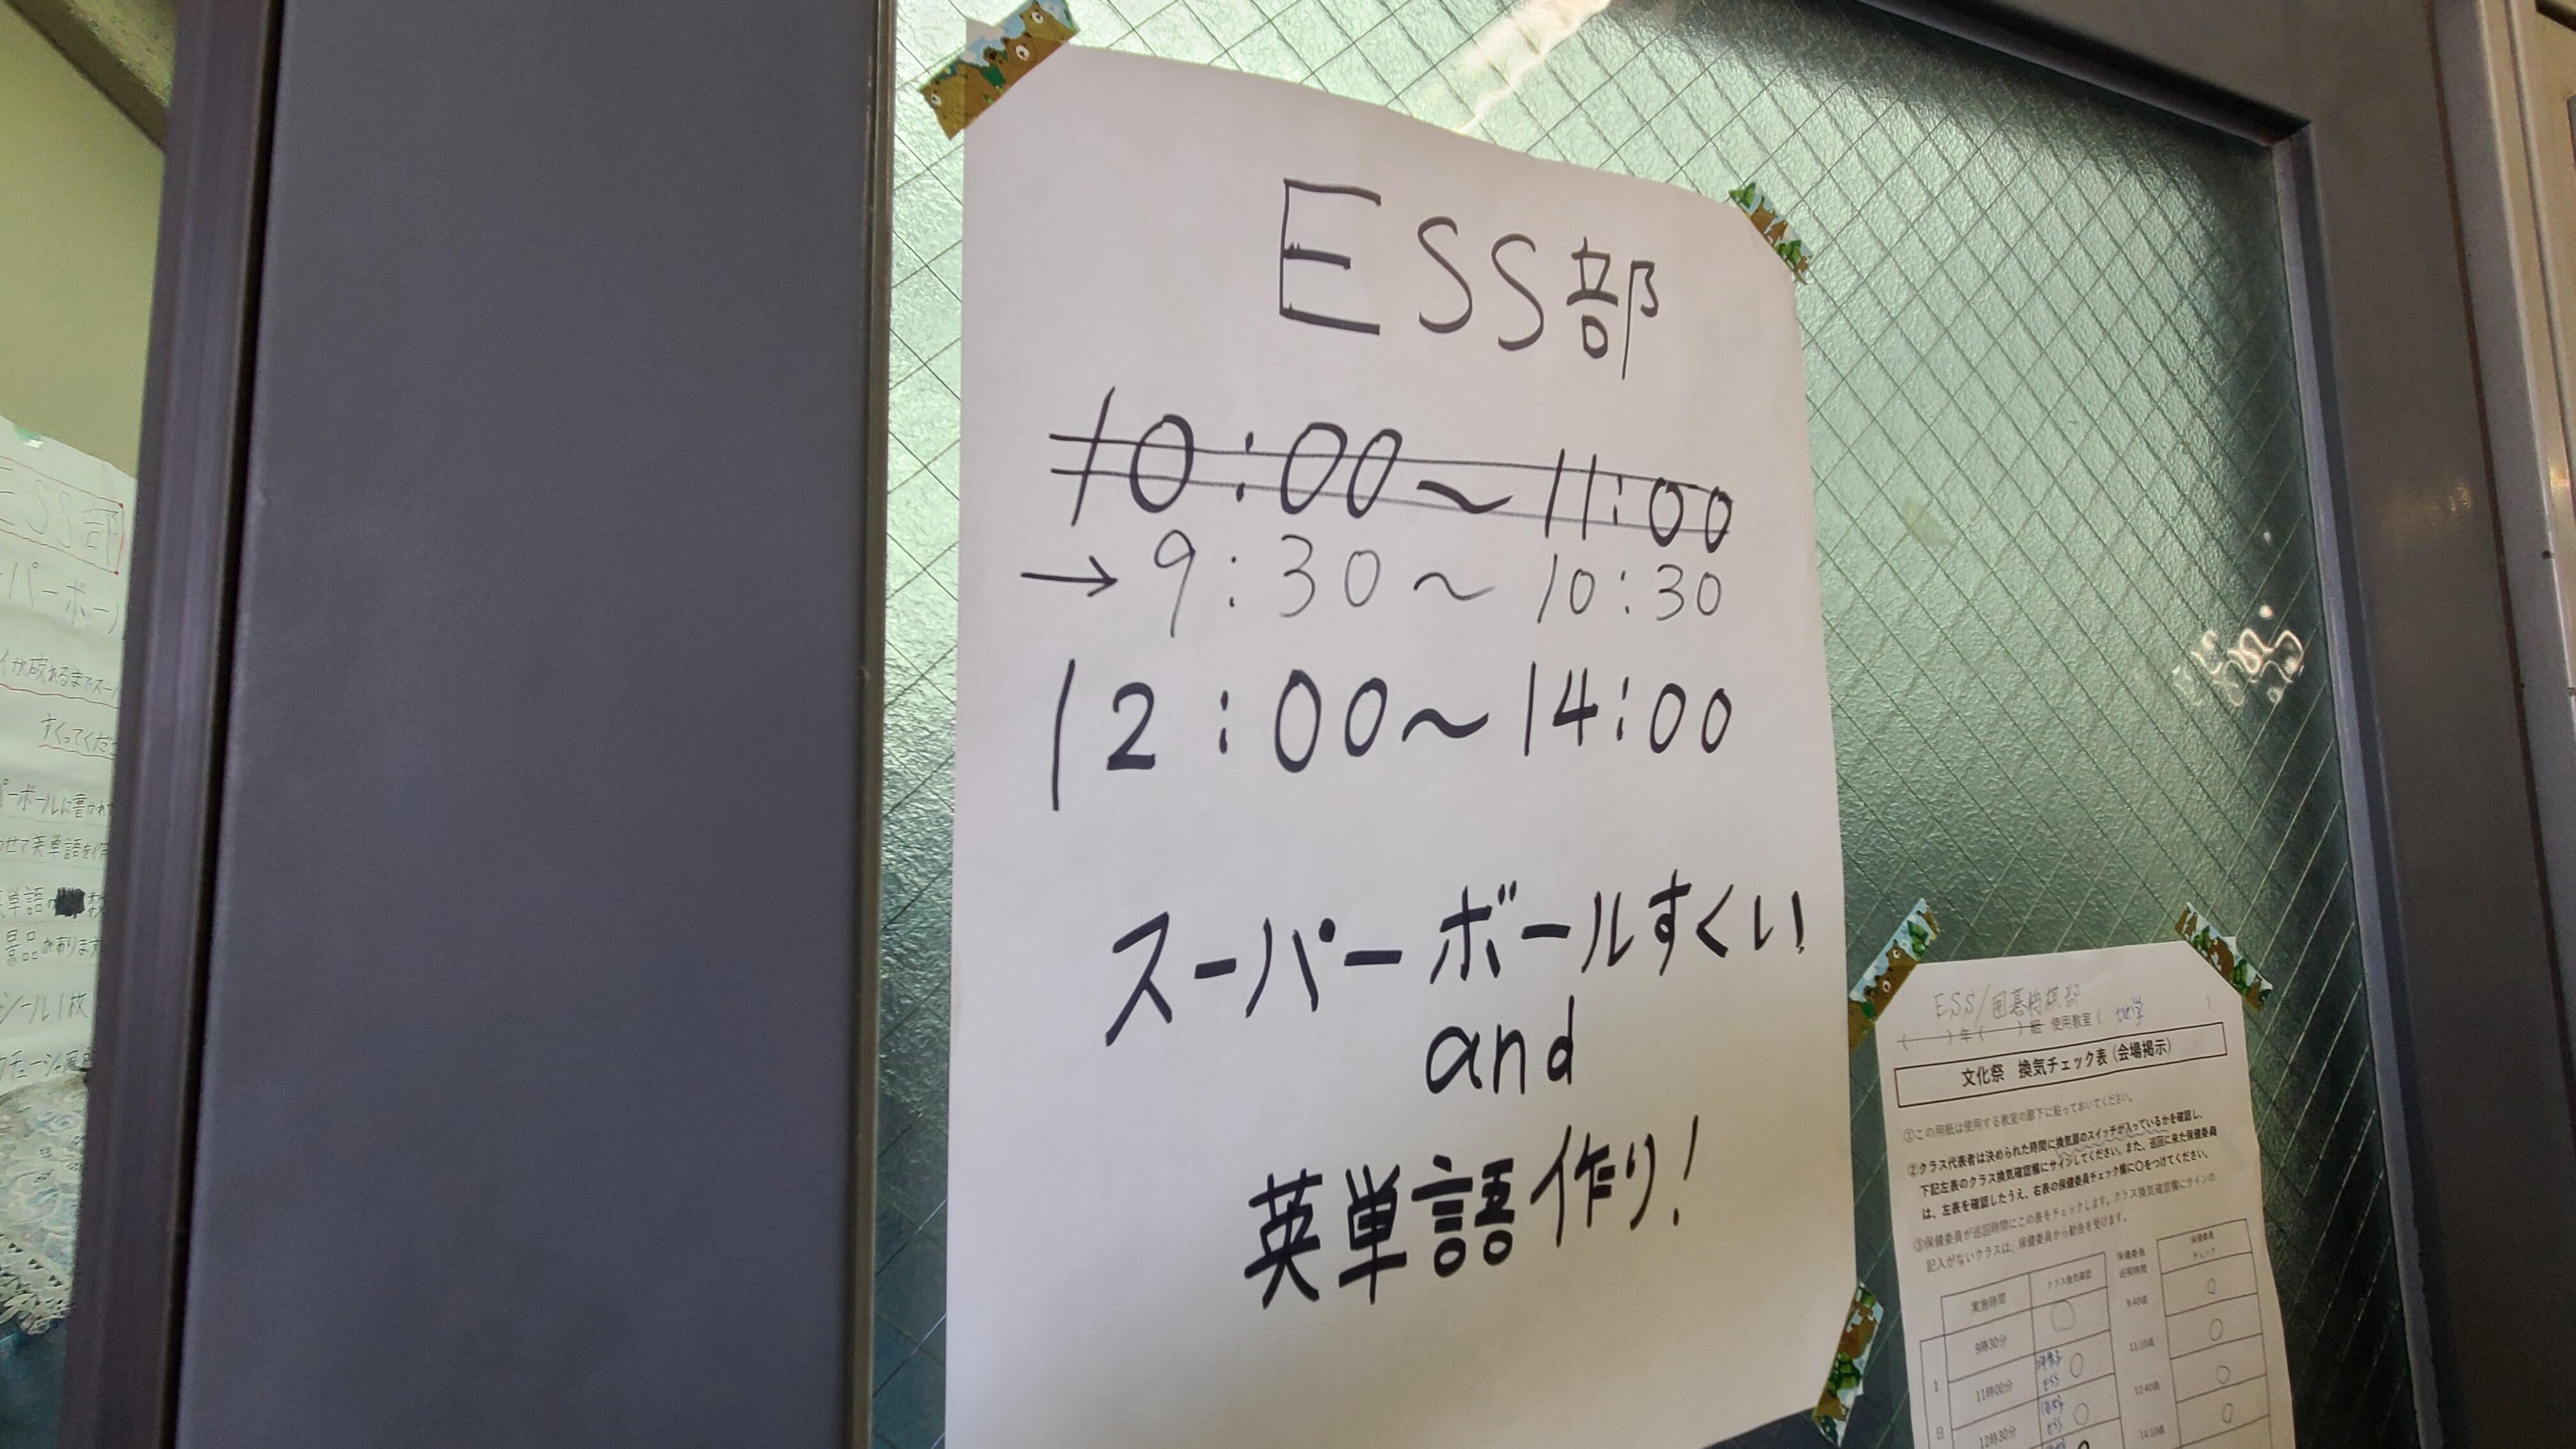 ESS部
10:00～11:00
→9:30～10:30
12:00～14:00
スーパーボールすくい
and
英単語作り!
ESS/囲碁将棋部
( )年( )組 使用教室( 地学 )
文化祭 換気チェック表(会場掲示)
①この用紙は使用する教室の廊下に貼っておいてください。
②クラス代表者は決められた時間に換気扇のスイッチが入っているかを確認し、
下記左表のクラス換気確認欄にサインしてください。また、巡回に来た保健委員
は、左表を確認したうえ、右表の保健委員チェック欄に○をつけてください。
③保健委員が巡回時間にこの表をチェックします。クラス換気確認欄にサインの
記入がないクラスは、保健委員から勧告を受けます。
実施時間 クラス換気確認 保健委員 巡視時間 保健委員 チェック
9時30分 ○ 9:40頃 ○
11時00分 ESS ○ 11:10頃 ○
12時30分 ESS ○ 12:40頃 ○
14:10頃 ○
1
日
ESS部
ーパーボー
イが破れるまでスー
すくってくださ
パーボールに書かれ
わせて英単語を作
英単語の 数
景品があります
シール1枚